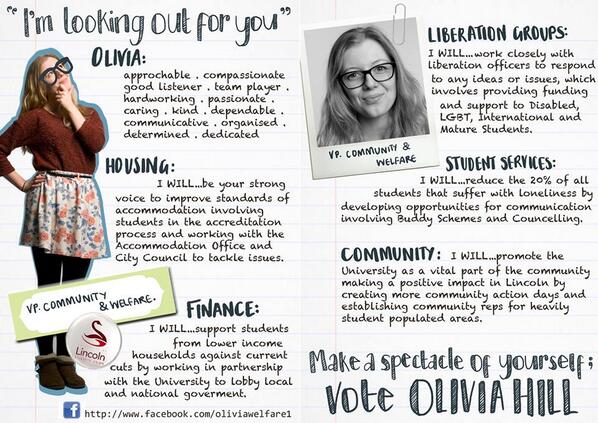 "I'm looking out for you"
OLIVIA:
approchable . compassionate
good listener . team player .
hardworking . passionate .
caring . kind . dependable .
communicative . organised .
determined . dedicated
HOUSING:
I WILL...be your strong
voice to improve standards of
accommodation involving
students in the accreditation
process and working with the
Accommodation Office and
City Council to tackle issues.
VP. COMMUNITY
& WELFARE.
Lincoln
FINANCE:
I WILL...support students
from lower income
households against current
cuts by working in partnership
with the University to lobby local
and national goverment.
f http://www.facebook.com/oliviawelfare1
VP. COMMUNITY &
WELFARE
LIBERATION GROUPS:
I WILL...work closely with
liberation officers to respond
to any ideas or issues, which
involves providing funding
and support to Disabled,
LGBT, International and
Mature Students.
STUDENT SERVICES:
I WILL...reduce the 20% of all
students that suffer with loneliness by
developing opportunities for communication
involving Buddy Schemes and Councelling.
COMMUNITY: I WILL...promote the
University as a vital part of the community
making a positive impact in Lincoln by
creating more community action days and
establishing community reps for heavily
student populated areas.
Make a spectacle of yourself;
Vote OLIVIA HILL